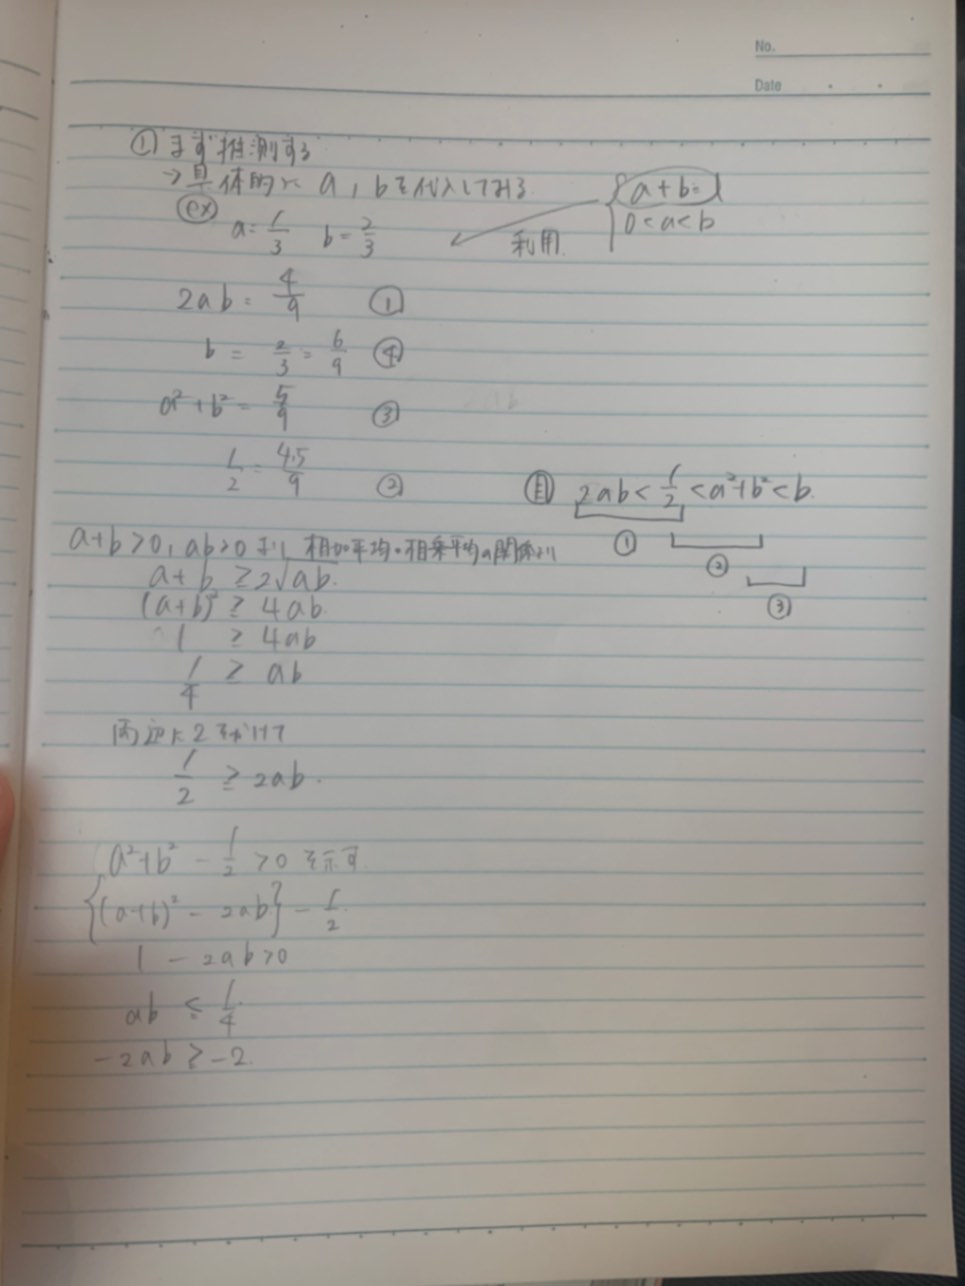 No.
Date
① まず推測する
→具体的に a, bを代入してみる
{a+b=1
0<a<b
利用.
ex
a=1/3 b=2/3
2ab = 4/9 ①
b = 2/3 = 6/9 ④
a²+b² = 5/9 ③
1/2 = 4.5/9 ②
目 2ab < 1/2 < a²+b² < b.
① ② ③
a+b>0, ab>0 より 相加平均・相乗平均の関係より
a+b ≥ 2√ab.
(a+b)² ≥ 4ab.
1 ≥ 4ab
1/4 ≥ ab
両辺に2をかけて
1/2 ≥ 2ab.
a²+b² - 1/2 >0 を示す
{(a+b)² - 2ab} - 1/2.
1 - 2ab>0
ab ≤ 1/4
-2ab ≥ -2.